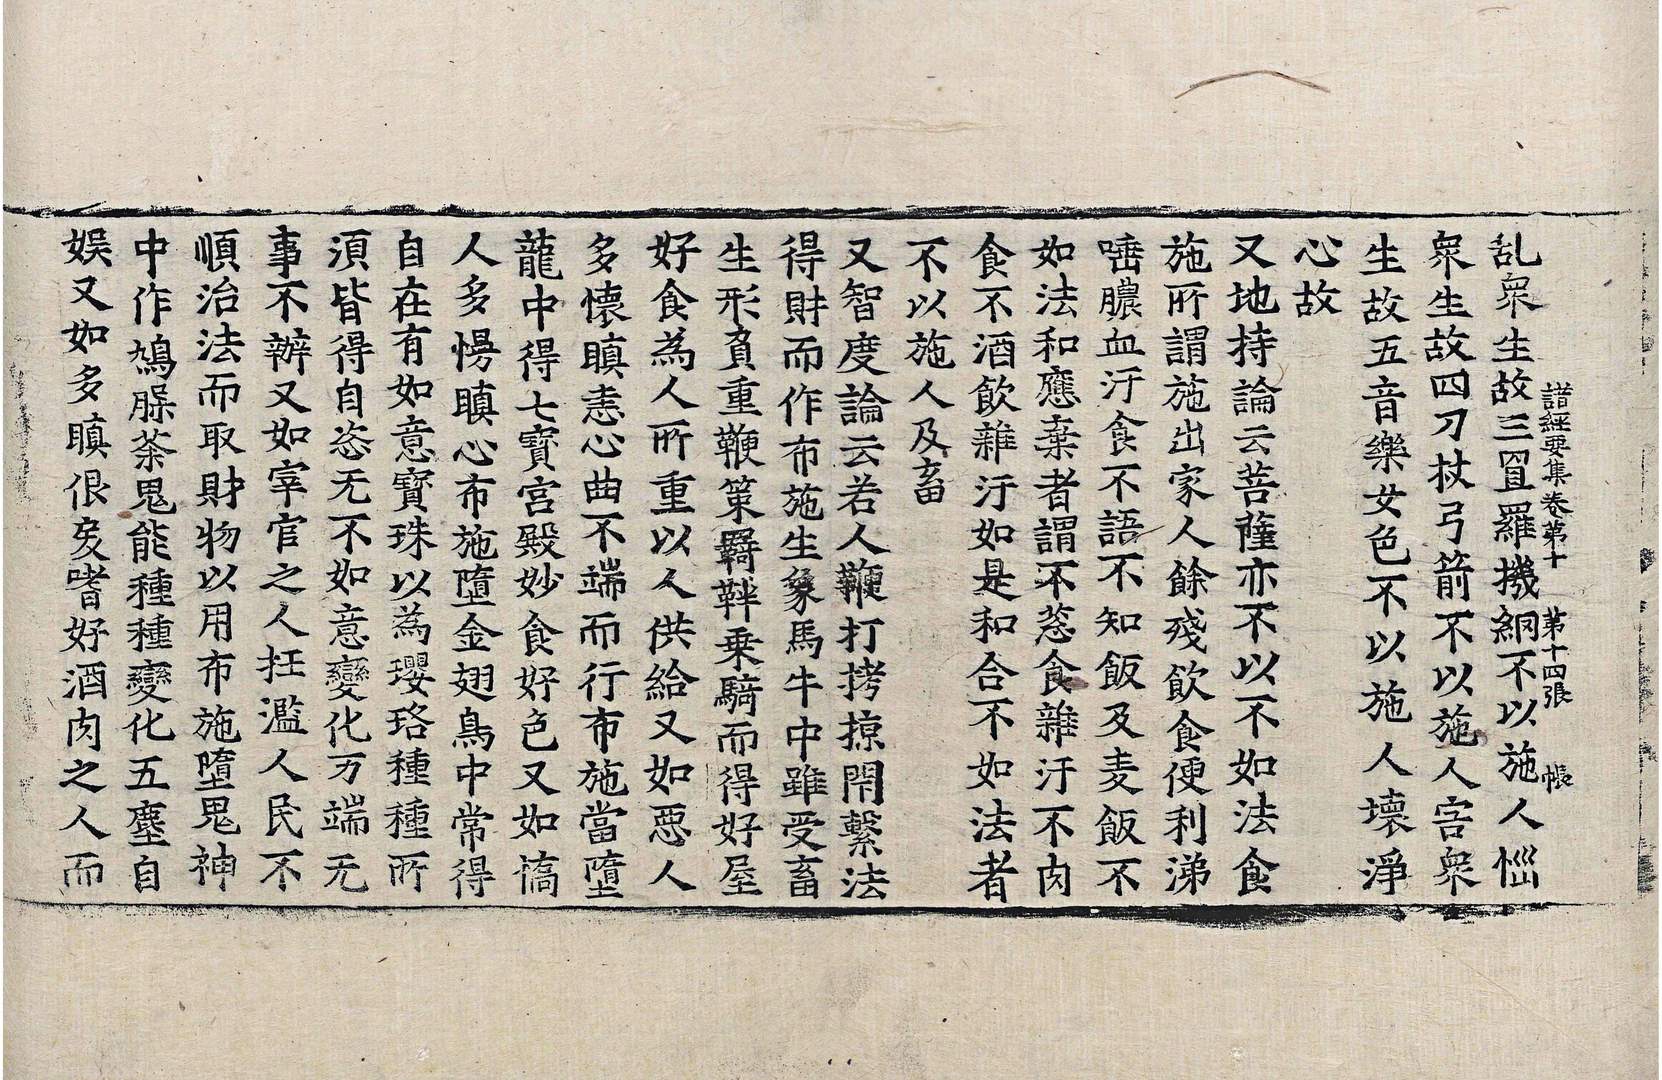 諸經要集卷第十　第十四張　帳
乱衆生故三罝羅機網不以施人惱
衆生故四刀杖弓箭不以施人害衆
生故五音樂女色不以施人壞淨
心故
又地持論云菩薩亦不以不如法食
施所謂施出家人餘殘飲食便利涕
唾膿血汙食不語不知飯及麦飯不
如法和應棄者謂不葱食雜汙不肉
食不酒飲雜汙如是和合不如法者
不以施人及畜
又智度論云若人鞭打拷掠閇繫法
得財而作布施生象馬牛中雖受畜
生形負重鞭策羇靽乗騎而得好屋
好食為人所重以人供給又如惡人
多懷瞋恚心曲不端而行布施當墮
龍中得七寳宮殿妙食好色又如憍
人多慢瞋心布施墮金翅鳥中常得
自在有如意寳珠以為瓔珞種種所
須皆得自恣无不如意變化万端无
事不辦又如宰官之人抂濫人民不
順治法而取財物以用布施墮鬼神
中作鳩腬荼鬼能種種變化五塵自
娛又如多瞋佷戾嗜好酒肉之人而